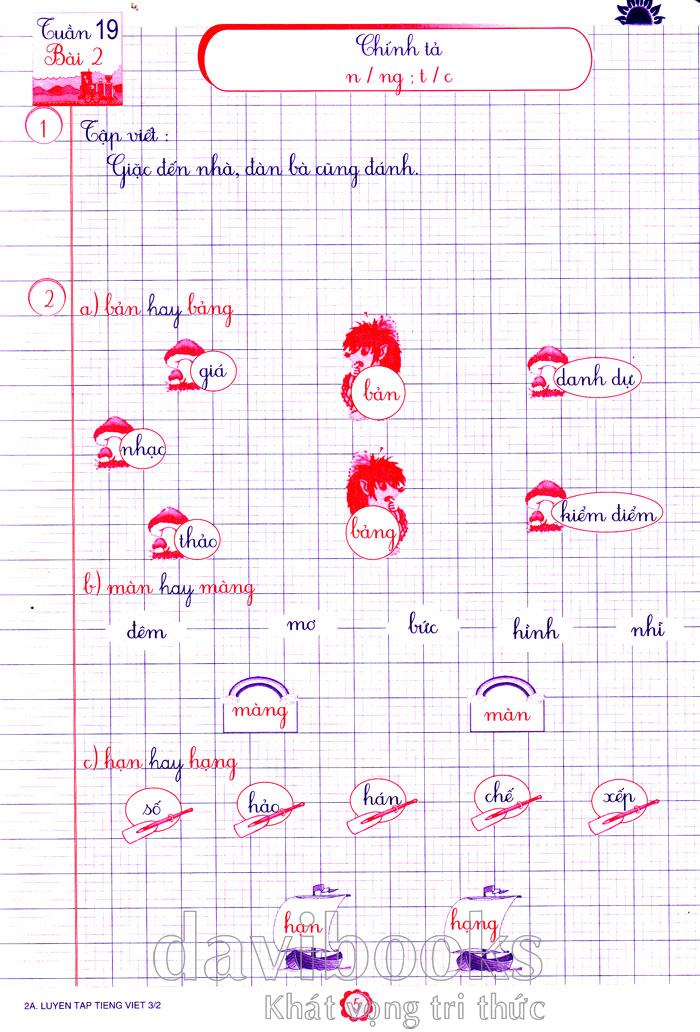 Tuần 19
Bài 2
Chính tả
n / ng ; t / c
1
Tập viết :
Giặc đến nhà, đàn bà cũng đánh.
2
a) bản hay bảng
giá
bản
danh dự
nhạc
thảo
bảng
kiểm điểm
b) màn hay màng
đêm mơ bức hình nhỉ
màng màn
c) hạn hay hạng
số hảo hán chế xếp
hạn hạng
davibooks
Khát vọng tri thức
5
2A. LUYEN TAP TIENG VIET 3/2